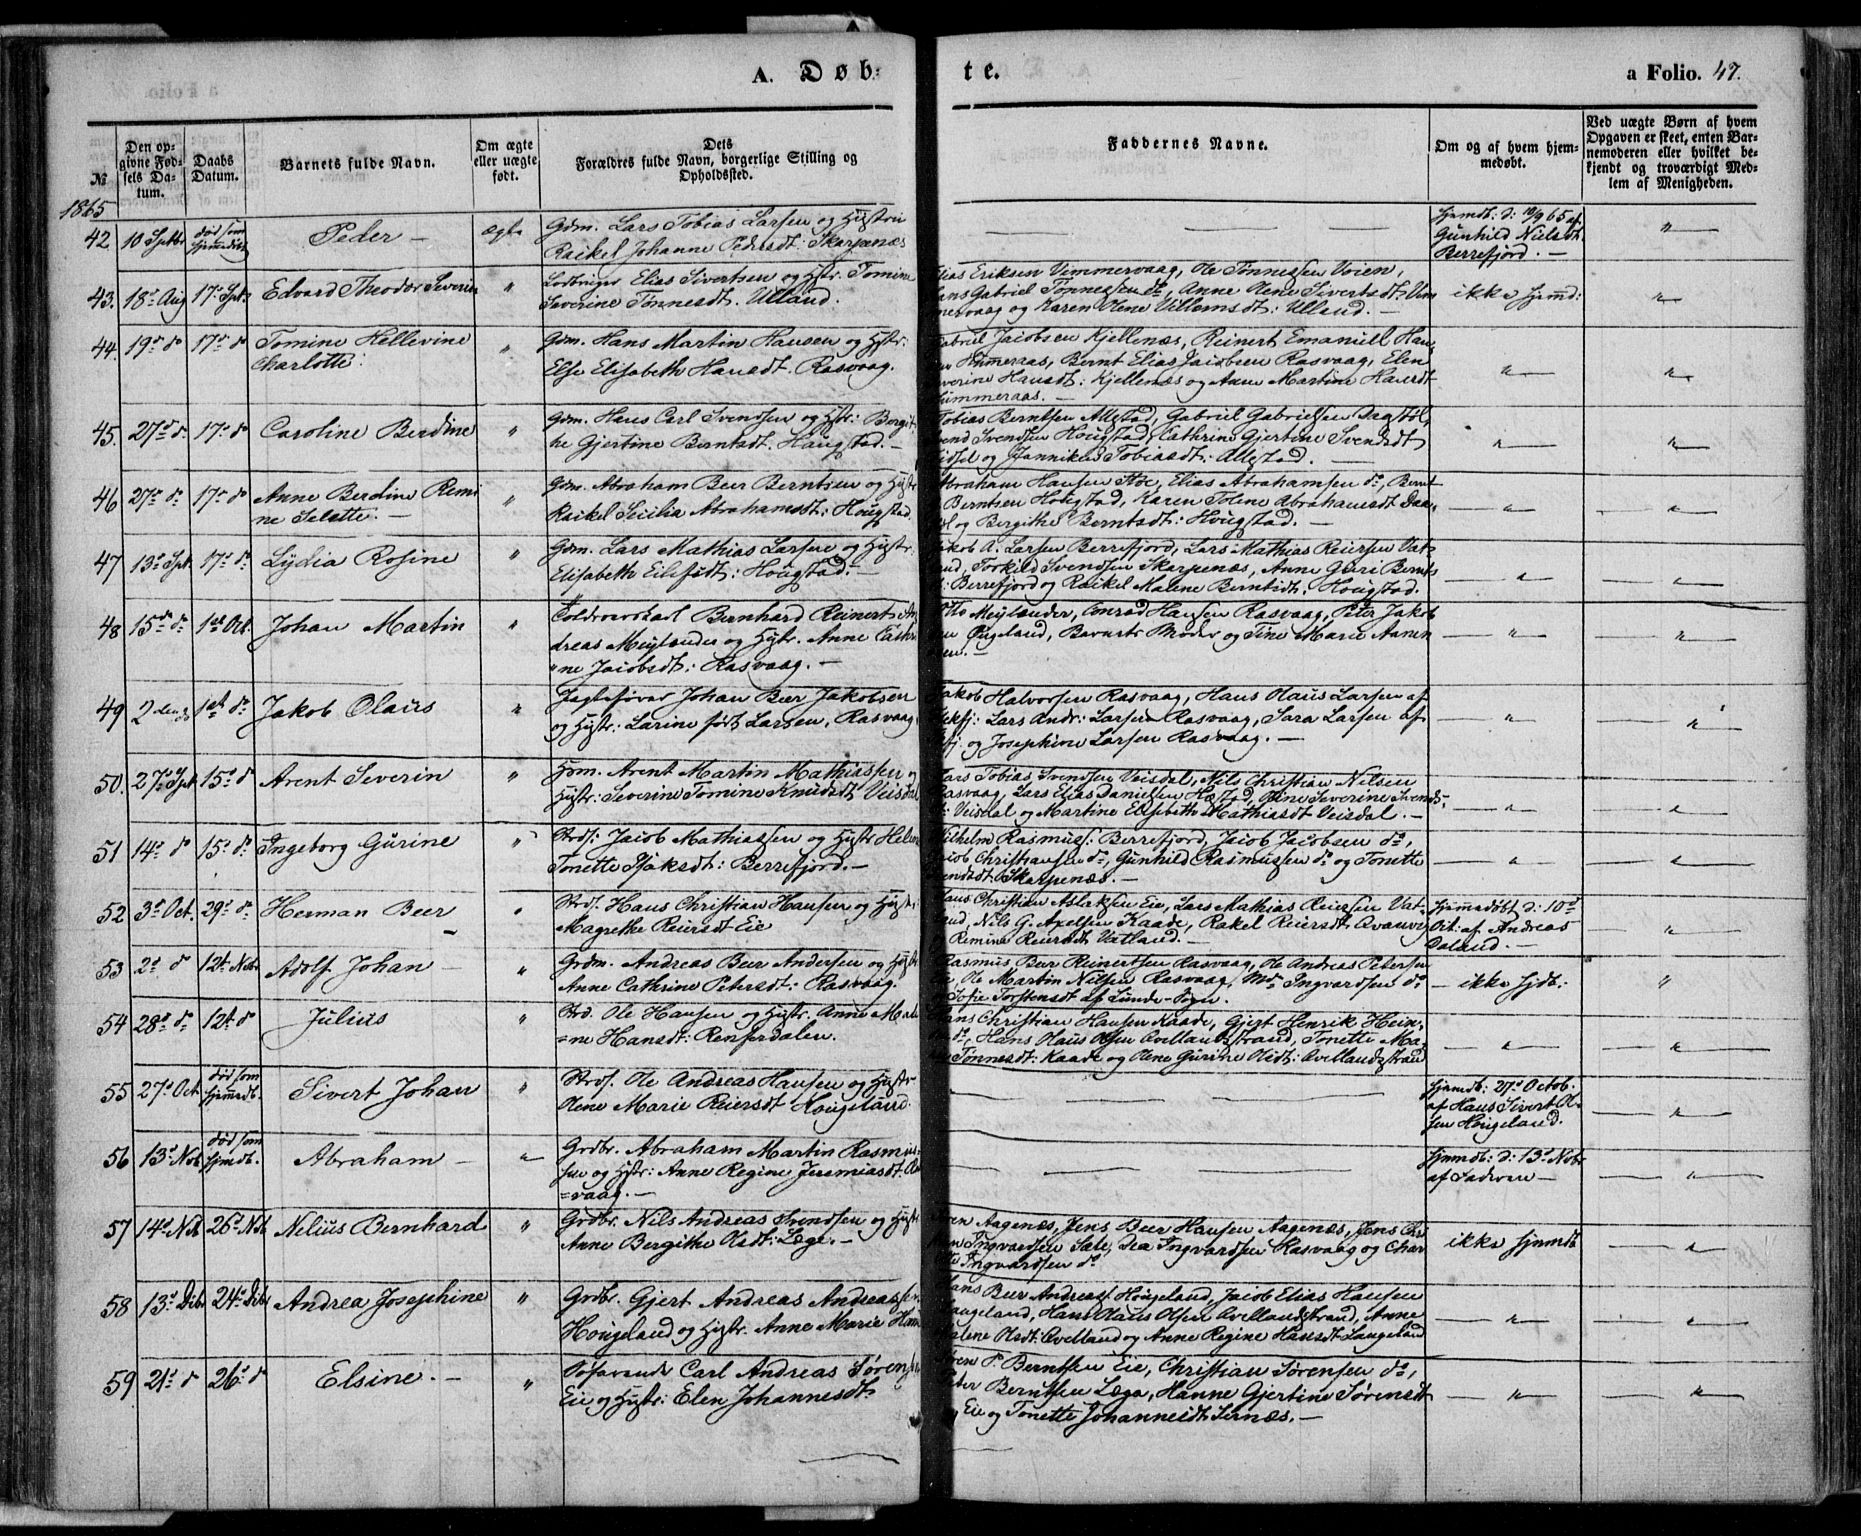 A. Døb-
te.
a Folio. 47.
№
Den op-
givne Fød-
sels Da-
tum.
Daabs
Datum.
Barnets fulde Navn.
Om ægte
eller uægte
født.
Dets
Forældres fulde Navn, borgerlige Stilling og
Opholdssted.
Faddernes Navne.
Om og af hvem hjem-
medøbt.
Ved uægte Børn af hvem
Opgaven er skeet, enten Bar-
nemoderen eller hvilket be-
kjendt og troværdigt Med-
lem af Menigheden.
1865
42 10 Septbr død som hjmmedøbt Peder — ægte
Gdm. Lars Tobias Larsen og Hustru
Raikel Johanne Pedersdt: Skarpenæs
Hjmdb: d: 10/9 65 af
Gunhild Nielsdt.
Berrefjord. —
43. 18d Aug 17d Spt. Edvard Theodor Severin "
Lodtsager Elias Sivertsen og Hstr. Tomine
Severine Tønnesdt. Ulland.
Elias Eriksen Vimmervaag, Ole Tønnessen Voien,
Hans Gabriel Tønnessen do, Anne Olene Sivertsdt: Vim
mervaag og Karen Olene Villemsdt: Ulland. —
ikke hjmd: "
44. 19d do 17d do Tomine Hellevine
Charlotte: "
Gdm. Hans Martin Hansen og Hstr:
Else Elisabeth Hansdt. Rasvaag.
Gabriel Jacobsen Kjellenæs, Reinert Emanuell Han-
sen Hummeraas, Bernt Elias Jacobsen Rasvaag, Elen
Severine Hansdt: Kjellenæs og Anne Martine Hansdt
Hummeraas. —
45. 27d d. 17d do Caroline Berdine "
Gdm. Hans Carl Svendsen og Hstr: Bergit-
he Gjertine Berntsdt. Hougstad. —
Tobias Berntsen Allestad, Gabriel Gabrielsen Dagsløl,
Svend Svendsen Hougstad, Cathrine Gjertine Svendsdt
Sidsel og Jannikes Tobiasdt: Allestad. —
46 27d do 17d do Anne Berdine Remi
ne Selette. — "
Gdm. Abraham Beer Berntsen og Hstr
Raikel Sicilia Abrahamsdt: Hougstad.
Abraham Hansen Støe, Elias Abrahamsen do, Bernt
Berntsen Hougstad, Karen Tolene Abrahamsdt Daa-
og Bergithe Berntsdt: Hougstad. —
47 13d Spt. 17d do Lydia Rosine "
Gdm. Lars Mathias Larsen og Hstr:
Elisabeth Eilefsdt: Hougstad. —
Jakob A. Larsen Berrefjord, Lars Mathias Reiersen Vat-
land, Torkild Svendsen Skarpenæs, Anne Guri Bernts
: Berrefjord og Raikel Malene Berntsdt: Hougstad.
48 15de do 1ste Oct. Johan Martin "
Toldroerskarl Bernhard Reinerts An-
dreas Meylænder og Hstr. Anne Cathri
ne Jacobsdt: Rasvaag. —
Otto Meylænder, Conrad Hansen Rasvaag, Peter Jakob
sen Øugeland, Barnets Moder og Tine Marie Aanen
sen. —
49 2den do 1ste do Jakob Olaus "
Jagteføver Johan Beer Jakobsen
og Hstr: Larine født Larsen, Rasvaag
Jakob Halvorsen Rasvaag, Hans Olaus Larsen af
Flekkfj: Lars Andr: Larsen Rasvaag, Sara Larsen af
og Josephine Larsen Rasvaag. —
50. 27d Spt. 15d do Arent Severin "
Hsm. Arent Martin Mathiassen og
Hstr: Severine Tomine Knudsdt Veisdal
Lars Tobias Svendsen Veisdal, Nils Christian Nilsen
Rasvaag, Lars Elias Danielsen Hæstad, Oline Severine Svends-
: Veisdal og Martine Elisabeth Mathiasdt Veisdal. —
51 14d do 15d do Ingeborg Gurine "
Strds: Jacob Mathiassen og Hstr Helene
Tonette Isaksdt: Berrefjord. —
Wilhelm Rasmuss: Berrefjord, Jacob Jacobsen do,
Jacob Christiansen do, Gunhild Rasmussen do og Tonette
Svendsdt: Skarpenæs. —
52 3d Oct. 29d do Herman Beer "
Strds: Hans Christian Hansen og Hstr:
Magrethe Reiersdt Eie
Hans Christian Aslaksen Eie, Lars Mathias Reiersen Vat-
land, Nils G. Axelsen Kaade, Rakel Reiersdt
Remine Reiersdt Vatland. —
Hjmmedøbt d: 10d
Oct: af Andreas
Daland. —
53 2d do 12te Nobr Adolf Johan — "
Grdm. Andreas Beer Andersen og Hstr
Anne Cathrine Petersdt: Rasvaag.
Rasmus Beer Reinertsen Rasvaag, Ole Andreas Petersen
Ole Martin Nilsen Rasvaag, Ingvardsen do
Sofie Torstensdt af Lunde-Sogn.
— ikke hjdb: "
54 28d do 12te do Julius "
Strd. Ole Hansen og Hstr. Anne Male
=ne Hansdt: Rensferdalen.
Hans Christian Hansen Kaade, Gjert Henrik Hein-
do, Hans Olaus Olsen Avellandsstrand, Tonette Ma-
Tønnesdt: Kaade og Olene Gurine Olsdt: Avellandsstrand
55 27d Oct. død som hjmmedb. Sivert Johan "
Strds. Ole Andreas Hansen og Hstr
Olene Marie Reiersdt Hougeland.
Hjmmdb: 27d Octob.
af Hans Sivert Ol-
sen Hougeland.
56 13d Nob død som hjmdb. Abraham — "
Grdbr. Abraham Martin Rasmus-
sen og Hstr: Anne Regine Jeremiasdt: Ras
=vaag. —
Hjmmdb: d: 13d Nobr
af Faderen —
57 14d Nob 26d Nob Nelius Bernhard "
Grdbr. Nils Andreas Svendsen og Hstr
Anne Bergithe Olsdt: Læge. —
Aagenæs, Jens Beer Hansen Aagenæs, Jens Chri
Ingvardsen Sæte, Dea Ingvardsen Rasvaag og Char
Ingvardsen do
ikke hjmdb
58 13d Dcbr 24d Dcbr Andrea Josephine "
Grdbr. Gjert Andreas Andreassen
Hougeland og Hstr. Anne Marie Hans
Hans Beer Andreas: Hougeland, Jacob Elias Hansen
Langeland, Hans Olaus Olsen Avellandsstrand, Anne
Malene Olsdt: Avelland og Anne Regine Hansdt Langeland
59 21d do 26d do Elsine. — "
Søfarende Carl Andreas Sørensen
Eie og Hstr: Elen Johannesdt
Søren P. Berntsen Eie, Christian Sørensen do,
Peter Berntsen Læga, Hanne Gjertine Sørensdt
Eie og Tonette Johannesdt Sirnæs. —